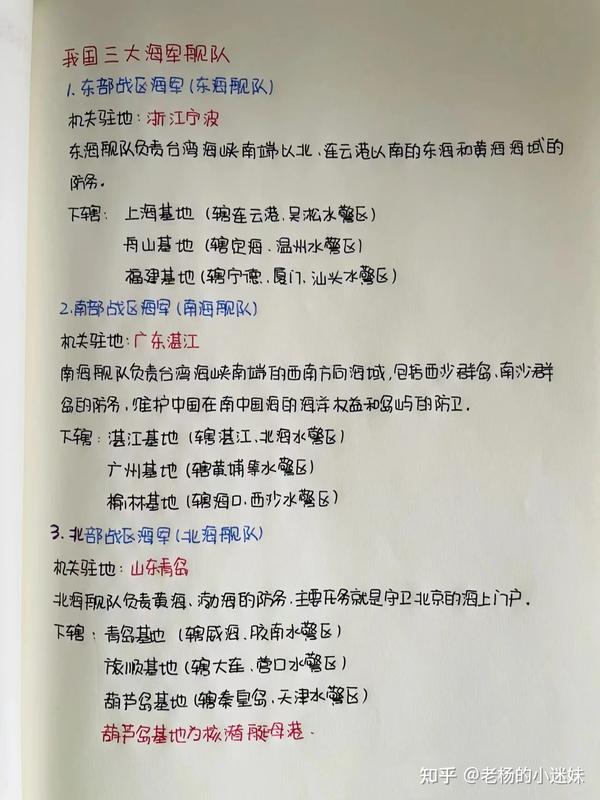 我国三大海军舰队
1.东部战区海军(东海舰队)
机关驻地:浙江宁波
东海舰队负责台湾海峡南端以北、连云港以南的东海和黄海海域的
防务。
下辖:上海基地(辖连云港、吴淞水警区)
舟山基地(辖定海、温州水警区)
福建基地(辖宁德、厦门、汕头水警区)
2.南部战区海军(南海舰队)
机关驻地:广东湛江
南海舰队负责台湾海峡南端的西南方向海域,包括西沙群岛、南沙群
岛的防务,维护中国在南中国海的海洋权益和岛屿的防卫.
下辖:湛江基地(辖湛江、北海水警区)
广州基地(辖黄埔等水警区)
榆林基地(辖海口、西沙水警区)
3.北部战区海军(北海舰队)
机关驻地:山东青岛
北海舰队负责黄海、渤海的防务.主要任务就是守卫北京的海上门户.
下辖:青岛基地(辖威海、胶南水警区)
旅顺基地(辖大连、营口水警区)
葫芦岛基地(辖秦皇岛、天津水警区)
葫芦岛基地为核潜艇母港.
知乎 @老杨的小迷妹